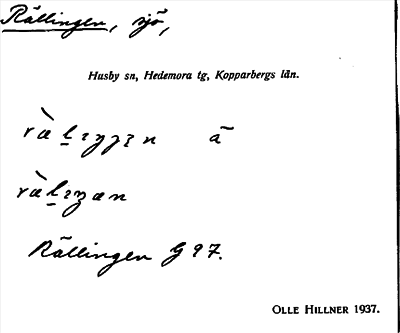 Rällingen, sjö,
Husby sn, Hedemora tg, Kopparbergs län.
å
Rällingen G 97.
OLLE HILLNER 1937.